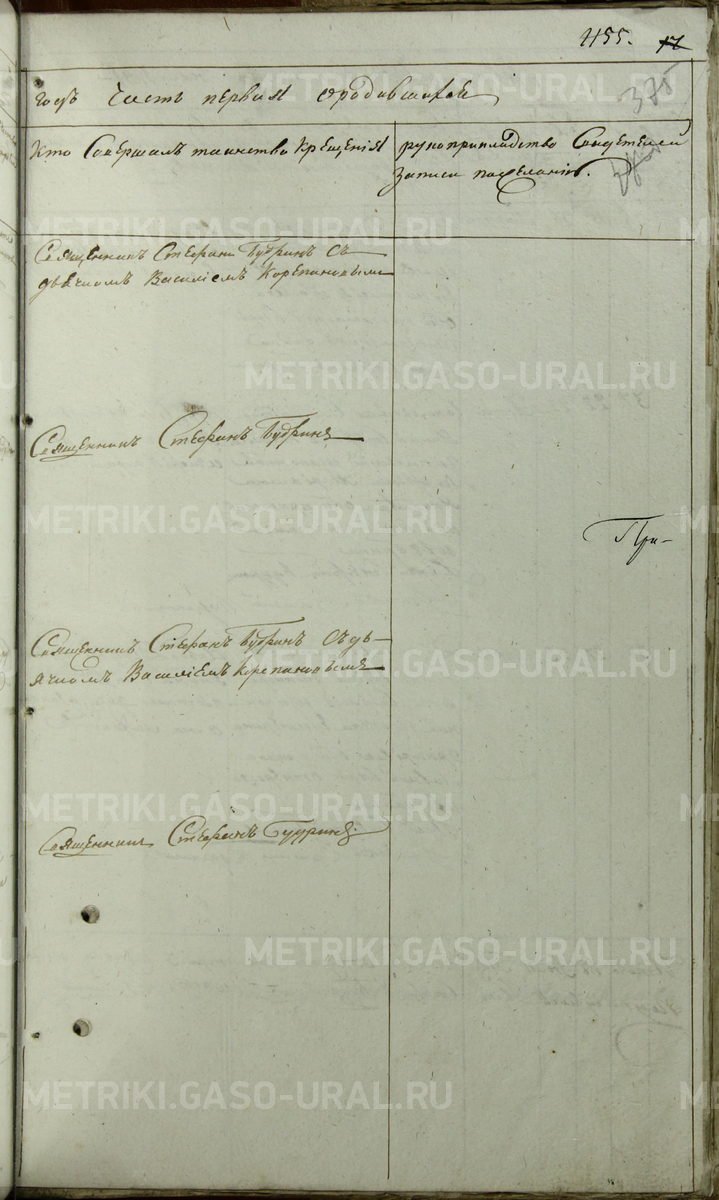 455. 17
375
годъ Часть первая ородившихся
Кто Совершалъ таинство Крещенія
рукоприкладство Свидетелей
записи пожеланію.
Священникъ Стефанъ Будринъ Съ
дьячкомъ Василіемъ Корепановымъ
Священникъ Стефанъ Будринъ
При-
Священникъ Стефанъ Будринъ Съ дь-
ячкомъ Василіемъ Корепановымъ
Священникъ Стефанъ Будринъ.
METRIKI.GASO-URAL.RU